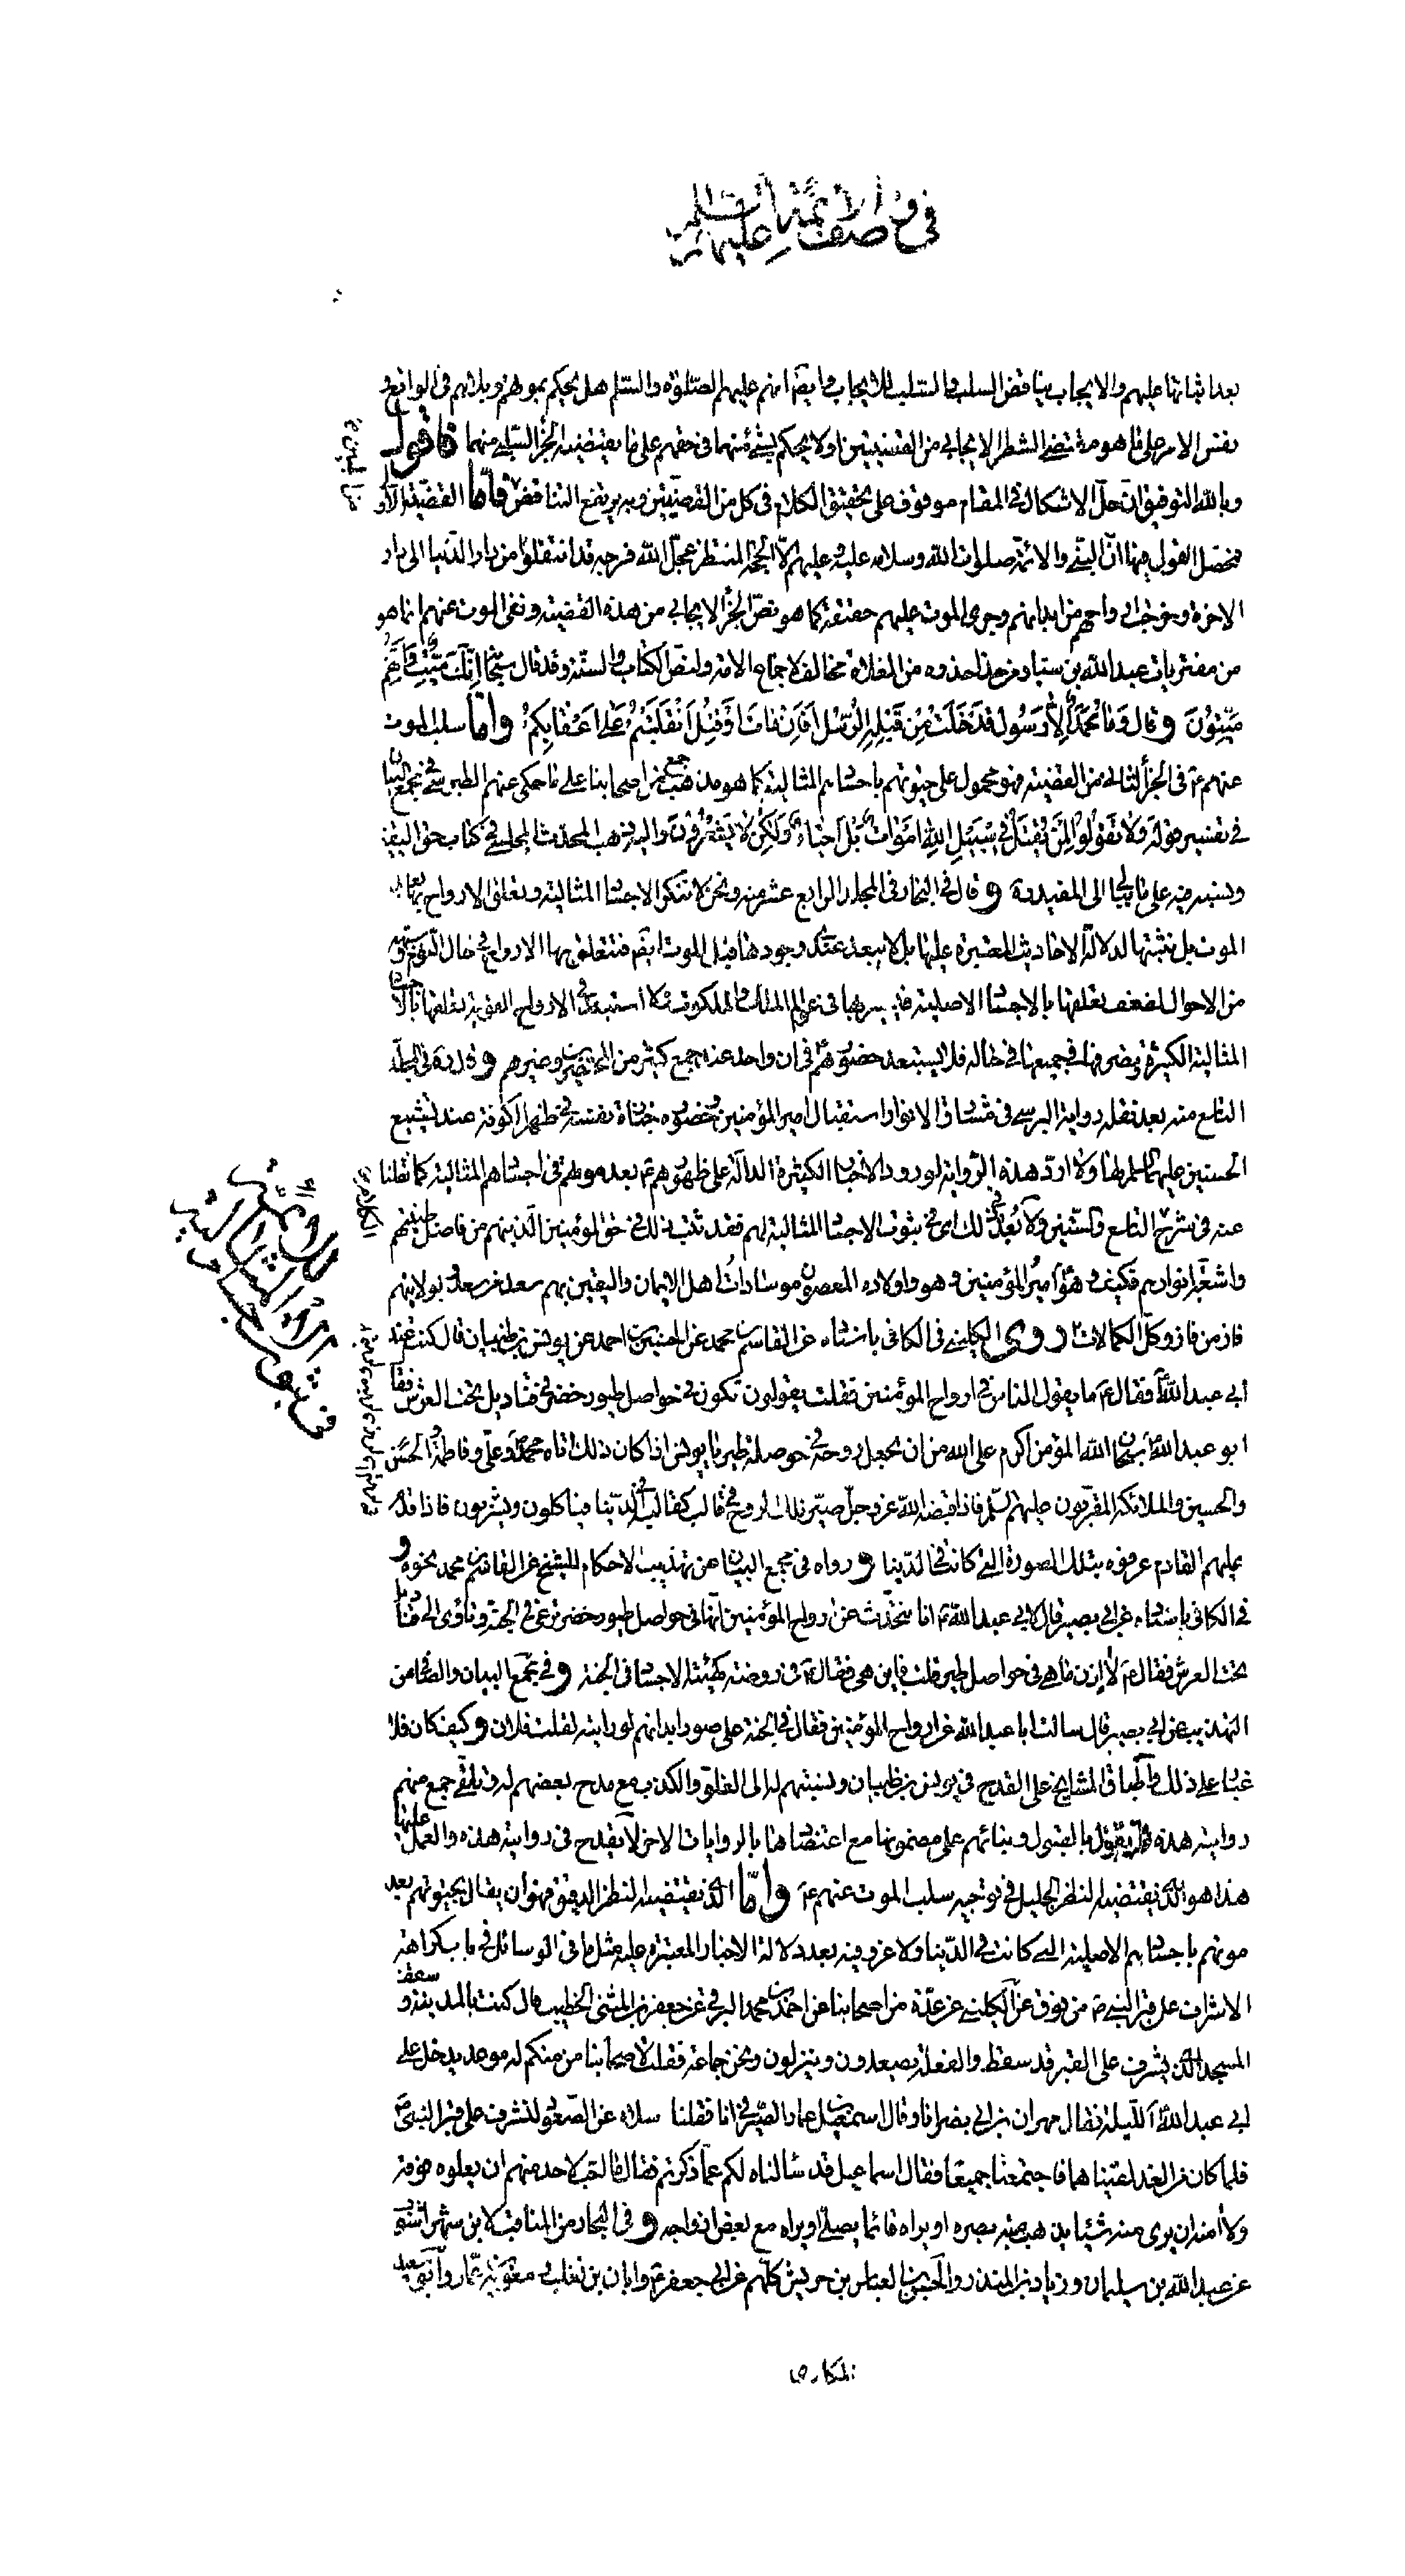 في وصف الأئمّة عليهم السّلام
بعد اثباتها عليهم والايجاب يناقض السلب والسّلب للايجاب وايضا انهم عليهم الصّلوة والسّلم هل يحكم بموتهم وبلائهم في الواقع و
نفس الامر على ما هو مقتضى الشطر الايجابي من القضيتين اولا يحكم بشئ منهما في حقهم على ما يقتضيه الجزء السّلبي منهما فاقول
وبالله التوفيق انّ حلّ الاشكال في المقام موقوف على تحقيق الكلام في كل من القضيّتين وبه يرتفع التناقض فامّا القضيّة الاولى
فمحصّل القول فيها انّ النبيّ والائمّة صلوات الله وسلامه عليه وعليهم الّا الحجّة المنتظر عجّل الله فرجه قد انتقلوا من دار الدّنيا الى دار
الاخرة وخرجت ارواحهم من ابدانهم وجرى الموت عليهم حقيقة كما هو نصّ الجزء الايجابي من هذه القضيّة ونفى الموت عنهم انما هو
من مفتريات عبد الله بن سبا ومن حذا حذوه من الغلاة مخالف لاجماع الامّة ولنصّ الكتاب والسّنّة وقد قال سبحانه إِنَّكَ مَيِّتٌ وَإِنَّهُمْ
مَيِّتُونَ وقال وَمَا مُحَمَّدٌ إِلَّا رَسُولٌ قَدْ خَلَتْ مِنْ قَبْلِهِ الرُّسُلُ أَفَإِنْ مَاتَ أَوْ قُتِلَ انْقَلَبْتُمْ عَلَى أَعْقَابِكُمْ وامّا سلب الموت
عنهم ع في الجزء الثاني من القضيّة فهو محمول على حيوتهم باجسادهم المثالية كما هو مذهب جمع من اصحابنا على ما حكى عنهم الطبرسي في مجمع البيان
في تفسير قوله وَلَا تَقُولُوا لِمَنْ يُقْتَلُ فِي سَبِيلِ اللَّهِ أَمْوَاتٌ بَلْ أَحْيَاءٌ وَلَكِنْ لَا تَشْعُرُونَ واليه ذهب المحدّث المجلسي في كتاب حق اليقين
ونسبه فيه على ما ببالي الى المفيد ره وقال في البحار في المجلد الرابع عشر منه ونحن لا ننكر الاجساد المثالية وتعلق الارواح بها بعد
الموت بل نثبتها لدلالة الاحاديث المعتبرة عليها بل لا يبعد عندي وجودها قبل الموت ايضا فتتعلق بها الارواح في حال النوم وشبهه
من الاحوال لضعف تعلقها بالاجساد الاصلية فيسير بها في عوالم الملك والملكوت ولا استبعد في الارواح القوية تعلقها بالاجساد
المثالية الكثيرة وتصرفها في جميعها في حالة فلا يستبعد حضورهم في ان واحد عند جمع كثير من المحتضرين وغيرهم وقال ره في المجلد
التاسع منه بعد نقله رواية البرسي في مشارق الانوار استقبال امير المؤمنين وحضوره جنازة نفسه في ظهر الكوفة عند تشييع
الحسنين عليهما السلام لها ولا اردّ هذه الرّواية لورود الاخبار الكثيرة الدالّة على ظهورهم ع بعد موتهم في اجسادهم المثالية كما نقلنا
عنه في شرح التاسع والستّين ولا بُعد في ذلك اى في ثبوت الاجساد المثالية لهم فقد ثبت ذلك في حق المؤمنين الّذينهم من فاضل طينتهم
واشعّة انوارهم فكيف هو امير المؤمنين وهو واولاده المعصومون سادات اهل الايمان واليقين بهم سعد من سعد وبولايتهم
فاز من فاز وكلّ الكمالات روى الكليني في الكافي باسناده عن القاسم بن محمد عن الحسين بن احمد عن يونس بن ظبيان قال كنت عند
أبي عبد الله ع فقال ع ما يقول الناس في ارواح المؤمنين فقلت يقولون تكون في حواصل طيور خضر في قناديل تحت العرش فقال
ابو عبد الله ع سبحان الله المؤمن اكرم على الله من ان يجعل روحه في حوصلة طير يا يونس اذا كان ذلك اتاه محمد وعليّ وفاطمة والحسن
والحسين والملائكة المقرّبون عليهم السّلم فاذا قبضه الله عزّ وجلّ صيّر تلك الروح في قالب كقالبه في الدّنيا فياكلون ويشربون فاذا قدم
عليهم القادم عرفوه بتلك الصورة التي كانت في الدّنيا ورواه في مجمع البيان عن تهذيب الاحكام للشيخ عن القاسم بن محمد نحوه و
في الكافي باسناده عن ابي بصير قال لابي عبد الله ع انا نتحدّث عن ارواح المؤمنين انّها في حواصل طيور خضر ترعى في الجنّة وتأوى الى قناديل
تحت العرش فقال ع لا إذن ما هي في حواصل طير قلت فاين هي فقال ع في روضة كهيئة الاجساد في الجنة وفي مجمع البيان والصافي من
التهذيب عن ابي بصير قال سالت ابا عبد الله عن ارواح المؤمنين فقال في الجنة على صور ابدانهم لو رايته لقلت فلان وكيف كان فلا
غبار على ذلك واطباق المشايخ على القدح في يونس بن ظبيان ونسبتهم له الى الغلوّ والكذب مع مدح بعضهم له وتلقّى جمع منهم
روايته هذه بالقبول وبنائهم على مضمونها مع اعتضادها بالروايات الاخر لا يقدح في روايته هذه والعمل عليها
هذا هو الّذي يقتضيه النظر الجليل في توجيه سلب الموت عنهم ع وامّا الّذي يقتضيه النظر الدقيق فهو ان يقال بحيوتهم بعد
موتهم باجسادهم الاصلية التي كانت في الدّنيا ولا غرو فيه بعد دلالة الاخبار المعتبرة عليه مثل ما في الوسائل في باب كراهة
الاشراف على قبر النبي ص من فوق عن الكليني عن عدّة من اصحابنا عن احمد بن محمد البرقي عن جعفر بن المثنى الخطيب قال كنت بالمدينة وسقف
المسجد الّذي يشرف على القبر قد سقط والفعلة يصعدون وينزلون ونحن جماعة فقلت لاصحابنا من منكم له موعد يدخل على
ابي عبد الله ع الليلة فقال مهران بن ابي بصر انا وقال اسمعيل بن عمار الصيرفي انا فقلنا سلاه عن الصّعود لنشرف على قبر النبيّ ص
فلما كان من الغد لقيناهما فاجتمعنا جميعا فقال اسماعيل قد سالناه لكم عمّا ذكرتم فقال ما احب لاحد منهم ان يعلوه فوقه
ولا امنه ان يرى منه شيئا يذهب منه بصره او يراه قائما يصلّى او يراه مع بعض ازواجه وفي البحار من المناقب لابن شهر اشوب
عن عبد الله بن سليمان وزياد بن المنذر والحسن بن العباس بن حريش كلّهم عن ابي جعفر ع وابان بن تغلب ومعوية بن عمار وابي سعيد
المكاري